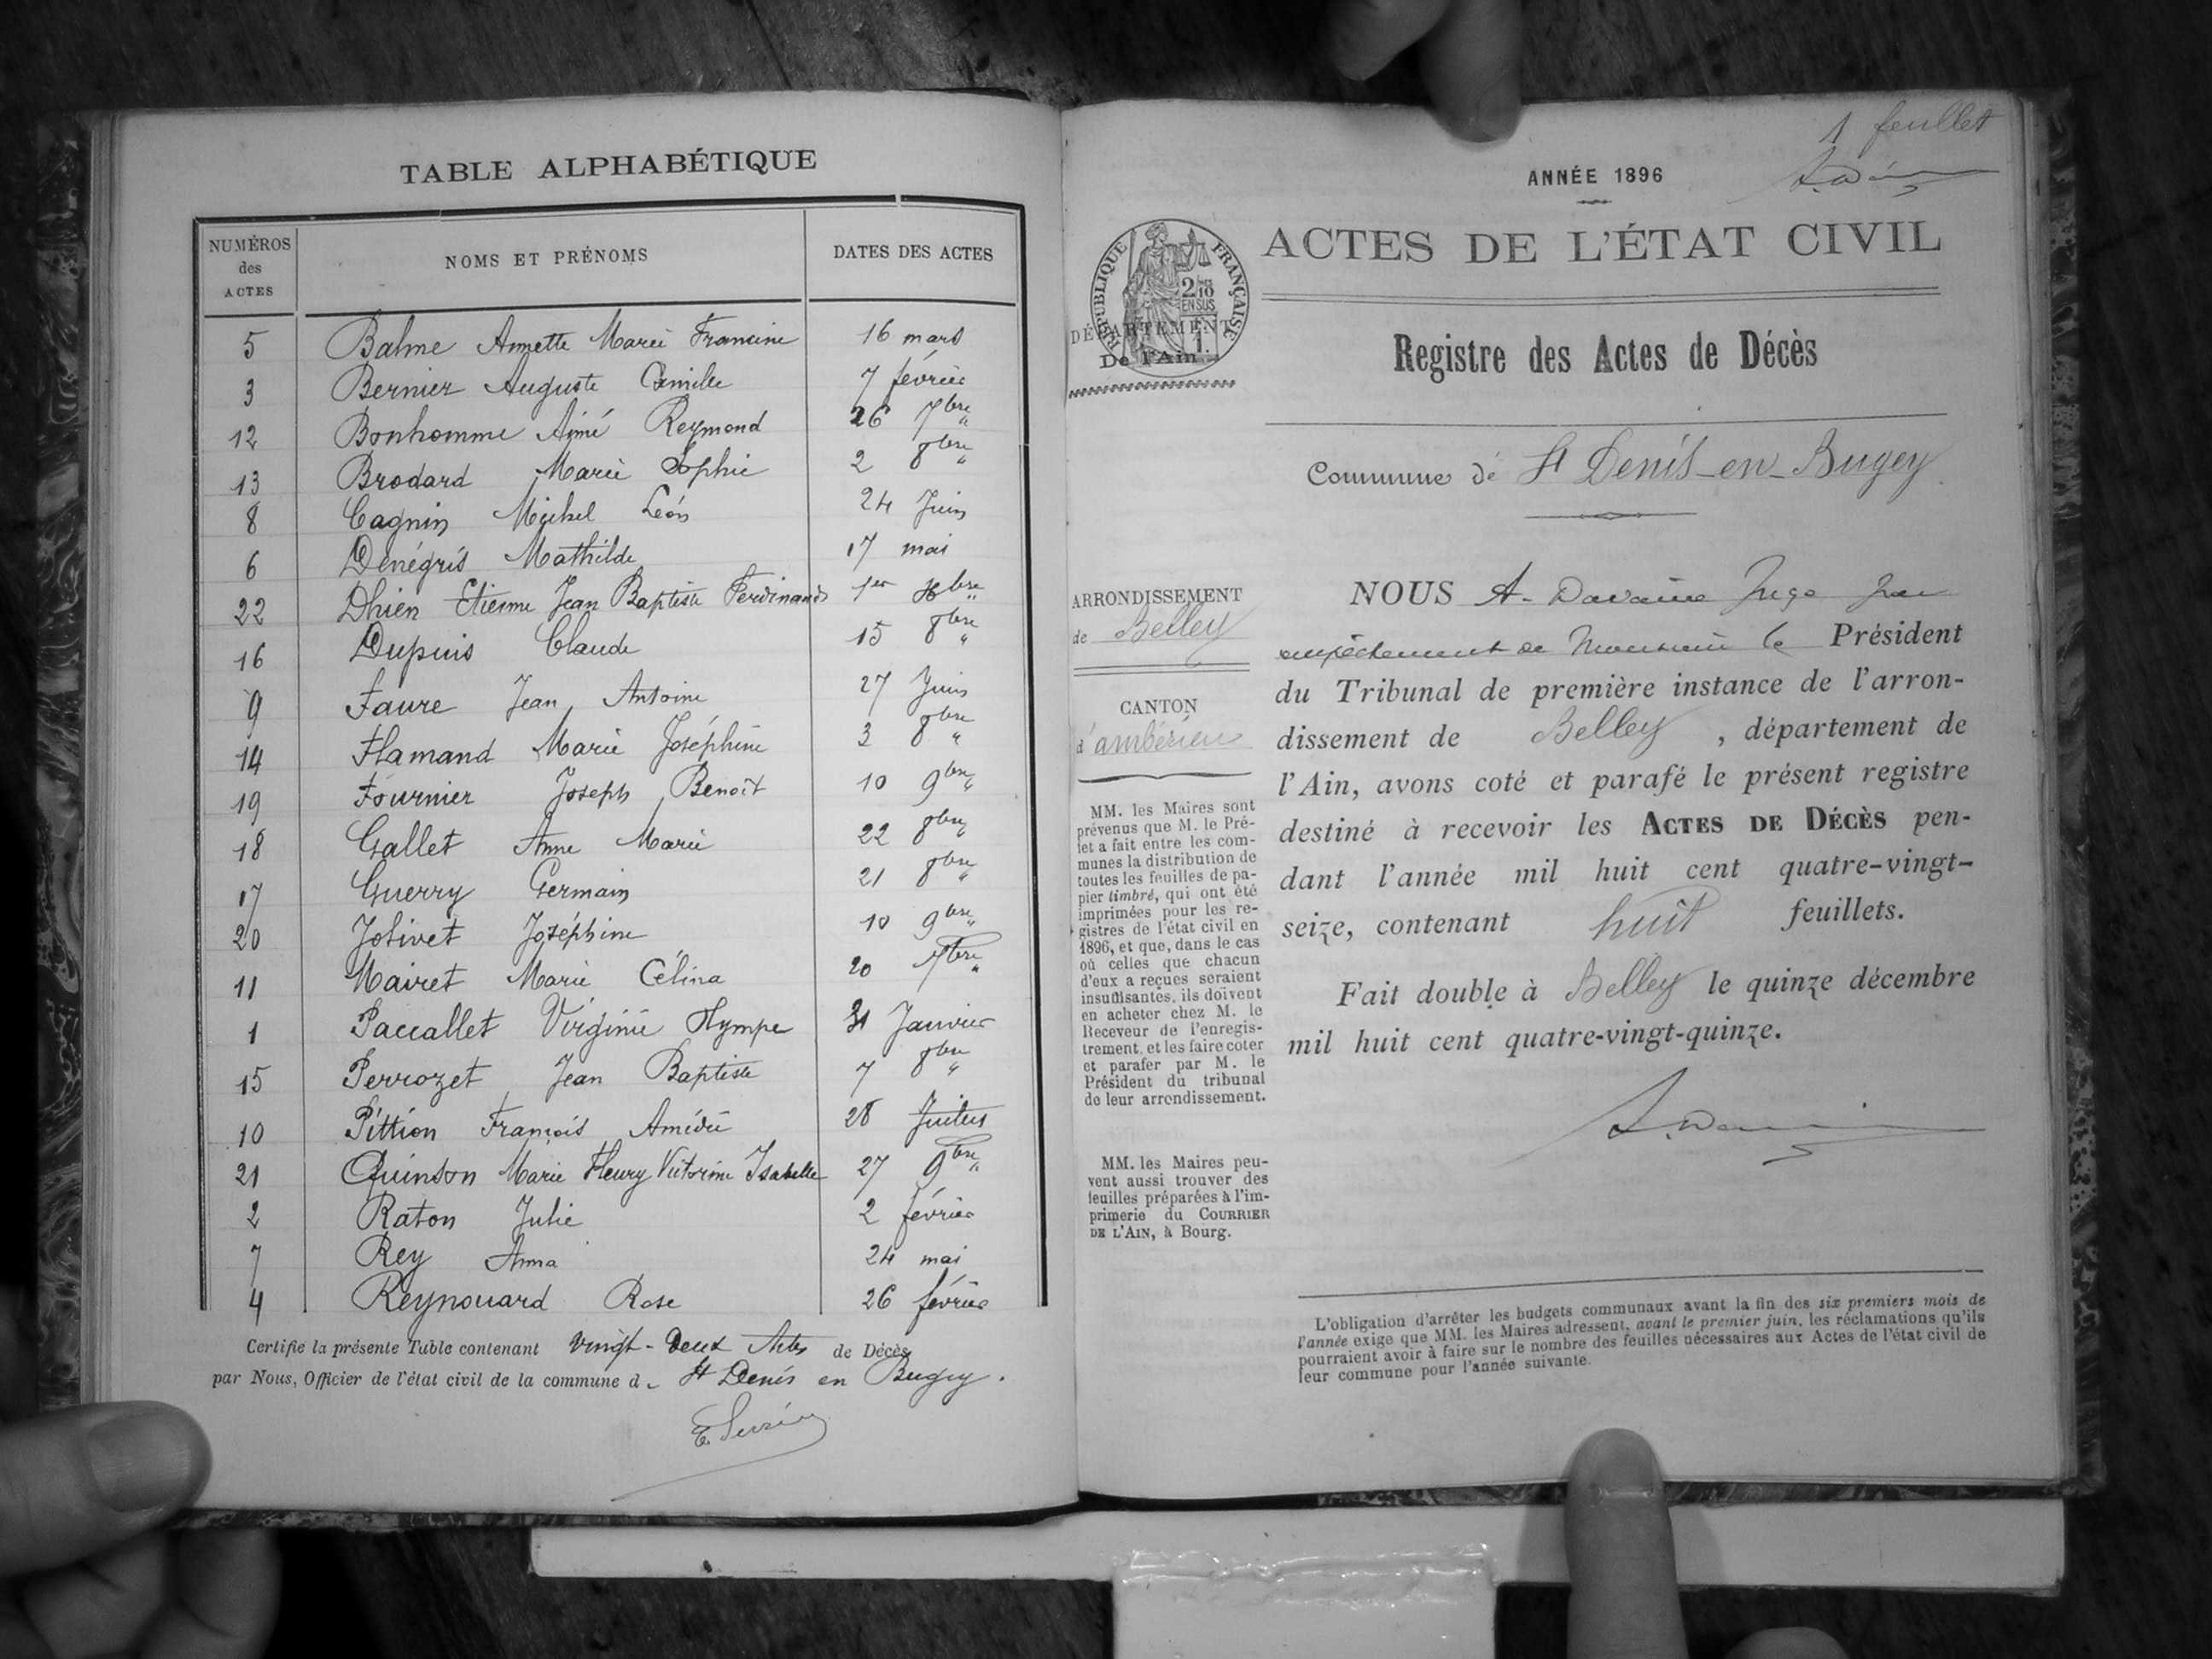 TABLE ALPHABÉTIQUE
NUMÉROS des ACTES NOMS ET PRÉNOMS DATES DES ACTES
5 Balme Annette Marie Francine 16 mars
3 Bernier Auguste Camille 7 février
12 Bonhomme Aimé Reymond 26 7bre "
13 Brodard Marie Sophie 2 8bre "
8 Cagnin Michel Léon 24 Juin
6 Dénégris Mathilde 17 mai
22 Dhien Etienne Jean Baptiste Ferdinand 1er Xbre "
16 Dupuis Claude 15 8bre "
9 Faure Jean Antoine 27 Juin
14 Flamand Marie Joséphine 3 8bre "
19 Fournier Joseph Benoît 10 9bre "
18 Gallet Anne Marie 22 8bre "
17 Guerry Germain 21 8bre "
20 Jolivet Joséphine 10 9bre "
11 Mairet Marie Célina 20 7bre "
1 Paccallet Virginie Olympe 31 Janvier
15 Perrozet Jean Baptiste 7 8bre "
10 Pittion François Amédée 28 Juillet
21 Quinson Marie Fleury Victorine Isabelle 27 9bre "
2 Raton Julie 2 février
7 Rey Anna 24 mai
4 Reynouard Rose 26 février
Certifie la présente Table contenant vingt-deux Actes de Décès
par Nous, Officier de l'état civil de la commune d. St Denis en Bugey.
1 feuillet
ANNÉE 1896
ACTES DE L'ÉTAT CIVIL
RÉPUBLIQUE FRANÇAISE
2/10 EN SUS
1.
DÉPARTEMENT
De l'Ain
Registre des Actes de Décès
Commune de St Denis-en-Bugey
ARRONDISSEMENT
de Belley
CANTON
d'ambérieu
MM. les Maires sont
prévenus que M. le Pré-
fet a fait entre les com-
munes la distribution de
toutes les feuilles de pa-
pier timbré, qui ont été
imprimées pour les re-
gistres de l'état civil en
1896, et que, dans le cas
où celles que chacun
d'eux a reçues seraient
insuffisantes, ils doivent
en acheter chez M. le
Receveur de l'enregis-
trement, et les faire coter
et parafer par M. le
Président du tribunal
de leur arrondissement.
MM. les Maires peu-
vent aussi trouver des
feuilles préparées à l'im-
primerie du COURRIER
DE L'AIN, à Bourg.
NOUS A. Davaine Juge par
empêchement de Monsieur le Président
du Tribunal de première instance de l'arron-
dissement de Belley, département de
l'Ain, avons coté et parafé le présent registre
destiné à recevoir les ACTES DE DÉCÈS pen-
dant l'année mil huit cent quatre-vingt-
seize, contenant huit feuillets.
Fait double à Belley le quinze décembre
mil huit cent quatre-vingt-quinze.
L'obligation d'arrêter les budgets communaux avant la fin des six premiers mois de
l'année exige que MM. les Maires adressent, avant le premier juin, les réclamations qu'ils
pourraient avoir à faire sur le nombre des feuilles nécessaires aux Actes de l'état civil de
leur commune pour l'année suivante.